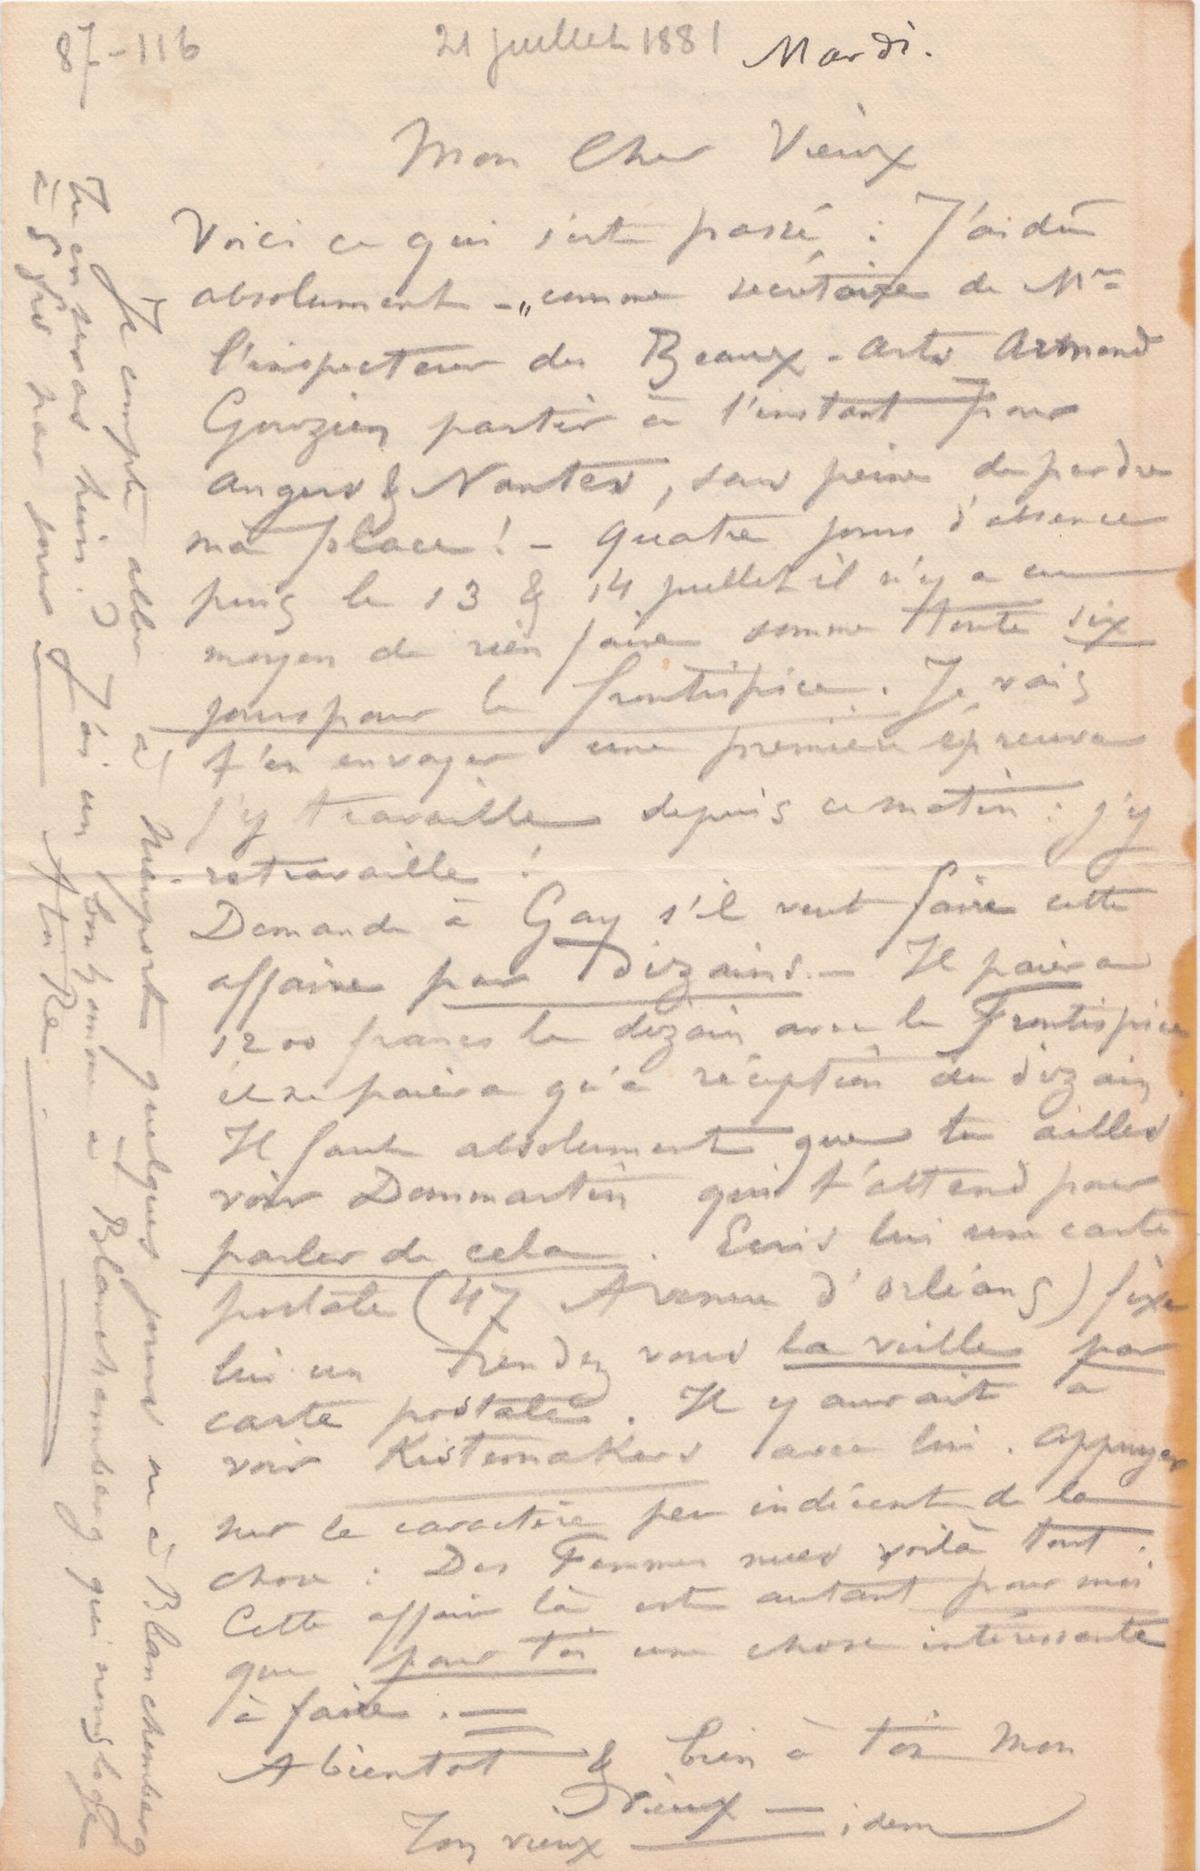 87-116
21 juillet 1881 Mardi.
Mon Cher Vieux
Voici ce qui s'est passé : J'ai dû
absolument - „ comme secrétaire de Mr
l'inspecteur des Beaux-arts Armand
Gouzien partir à l'instant pour
Angers & Nantes, sous peine de perdre
ma place ! - Quatre jours d'absence
puis le 13 & 14 juillet il n'y a eu
moyen de rien faire somme toute six
jours pour le frontispice. Je vais
t'en envoyer une première épreuve
j'y travaille depuis ce matin : j'y
retravaille !
Demande à Gay s'il veut faire cette
affaire par Dizains. - Il paiera
1200 francs le dizain avec le Frontispice
et ne paiera qu'à réception du dizain.
Il faut absolument que tu ailles
voir Dommartin qui t'attend pour
parler de cela. Ecris lui une carte
postale (47 Avenue d'orléans) fixe
lui un rendez vous la veille par
carte postale. Il y aurait à
voir Kistemakers avec lui. Appuyer
sur le caractère peu indécent de la
chose : Des Femmes nues voilà tout.
Cette affaire là est autant pour moi
que pour toi une chose intéressante
à faire. =
A bientot & bien à toi mon
Vieux —
Ton vieux idem
Je compte aller à Nieuport quelques jours ou à Blanchemberg
Tu en seras hein ? J'ai un bonhomme à Blanchemberg qui nous loge
à 5 frs par jour
A toi Re.